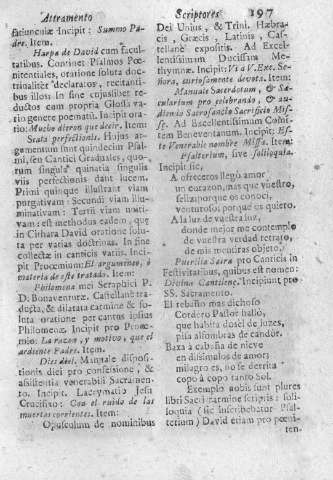 Attramento
Scriptores 197
siciunciæ Incipit: Summo Pa-
dre. Item.
Harpa de David cum facul-
tatibus. Continet Psalmos Pœ-
nitentiales, oratione soluta doc-
trinaliter declaratos, rectanti-
bus illos. In fine cujuslibet re-
ductos cum propria Glossa va-
rio genere poematu. Incipit ora-
tio: Mucho dieron que decir. Item
Scala perfectionis. Hujus ar-
gumentum sunt quindecim Psal-
mi, seu Cantici Graduales, quo-
rum singula quinatia singulis
viis perfectionis dant lucem.
Primi quinque illustrant viam
purgativam: Secundi viam illu-
minativam: Tertii viam uniti-
vam: est methodus eadem, quæ
in Cithara David oratione solu-
ta per varias doctrinas. In fine
collectæ in canticis variis. Inci-
pit Procemium: El argumento, ò
materia de este tratado. Item:
Philomena mei Seraphici P.
D. Bonaventuræ. Castellane tra-
ducta, & dictata carmine & so-
luta oratione per cantus ipsius
Philomenæ. Incipit pro Procœ-
mio: La razon, y motivo, que el
ardiente Padre. Item.
Dies diei. Manuale disposi-
tionis diei pro confessione, &
assistentia venerabilis Sacramen-
to. Incipit. Lacrymatio Jesu
Crucifixo: Con el ruido de las
muertas corrientes. Item:
Opusculum de nominibus
Dei Unius, & Trini. Hæbra-
cis, Græcis, Latinis, Cas-
tellane expositis. Ad Excel-
lentissimum Ducissam Me-
thymnæ. Incipit: Vi a V. Exc. Se-
ñora, curiosamente devota. Item.
Manuale Sacerdotum, & Sæ-
cularium pro celebrando, & au-
diendo Sacrosancto Sacrificio Mis-
sæ. Ad Excellentissimum Comi-
tem Beneventanum. Incipit: Es-
te Venerable nombre Missa. Item:
Psalterium, sive soliloquia.
Incipit sic,
A ofreceros llegò amor
un corazon, mas que vuestro,
feliz, porque os conoci,
venturoso, porque os quiero.
A la luz de vuestra luz,
donde mejor me contemplo
de vuestra verdad retrato,
de mis mentiras objeto.
Puerilia Sacra pro Canticis in
Festivitatibus, quibus est nomen:
Divina Cantilene. Incipiunt pro
SS. Sacramento.
El rebaño mas dichoso
Cordero Pastor hallò,
que habita dosel de luzes,
pisa alfombras de candor.
Baxa à cabaña de nieve
en dissimulos de amor,
milagro es, no se derrita
copo à copo tanto Sol.
Exemplo nobis sunt plures
libri Sacri carmine scriptis: soli-
loquia (sic inscribebatur Psal-
terium) David etiam pro pœni-
ten.